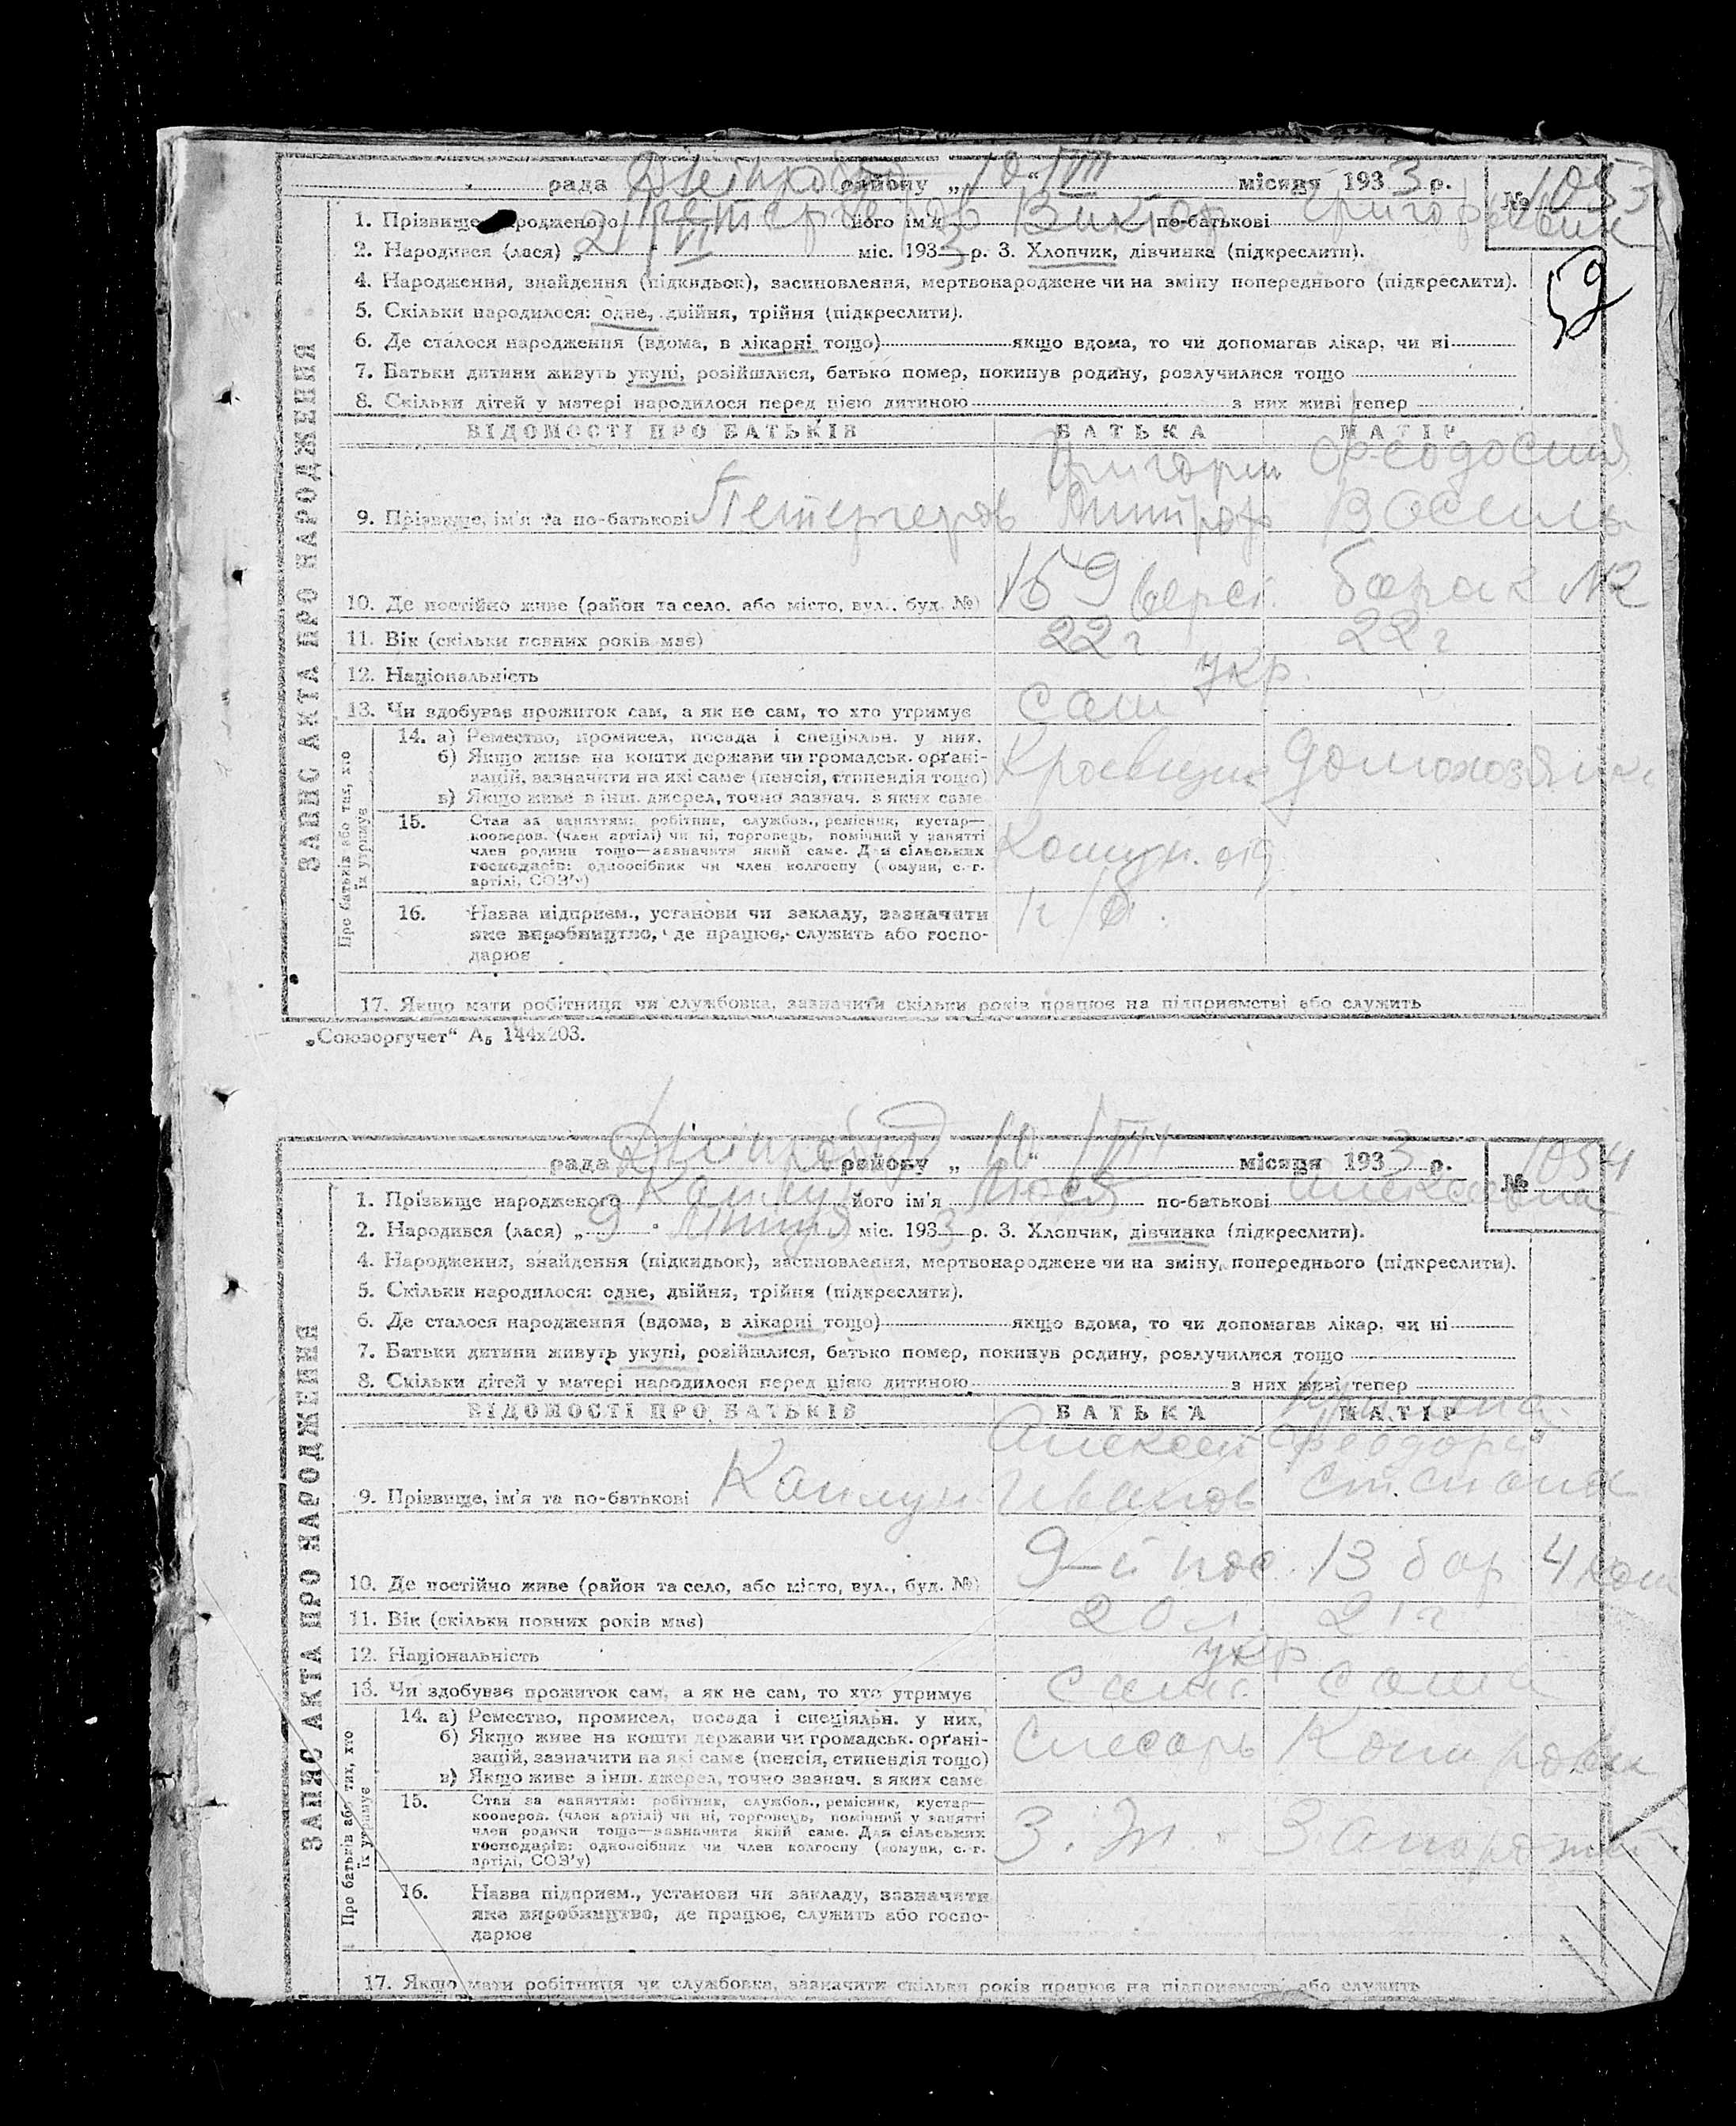 рада Дніпробуд району „ 10 “ VIII місяця 1933 р. № 1053
1. Прізвище народженого його ім'я Виктор по-батькові Григорьевич
2. Народився (лася) „ 21 “ VI міс. 1933 р. 3. Хлопчик, дівчинка (підкреслити).
59
4. Народження, знайдення (підкидьок), засиновлення, мертвонароджене чи на зміну попереднього (підкреслити).
5. Скільки народилося: одне, двійня, трійня (підкреслити).
6. Де сталося народження (вдома, в лікарні тощо) якщо вдома, то чи допомагав лікар, чи ні
7. Батьки дитини живуть укупі, розійшлися, батько помер, покинув родину, розлучилися тощо
8. Скільки дітей у матері народилося перед цією дитиною з них живі тепер
ЗАПИС АКТА ПРО НАРОДЖЕННЯ
ВІДОМОСТІ ПРО БАТЬКІВ БАТЬКА МАТІР
Григорий Феодосия
9. Прізвище, ім'я та по-батькові Дмитров Василь
10. Де постійно живе (район та село, або місто, вул., буд. №) барак №2
11. Вік (скільки повних років має) 22 г 22 г
12. Національність укр.
13. Чи здобував прожиток сам, а як не сам, то хто утримує сам
Про батьків або тих, хто їх утримує
14. а) Ремество, промисел, посада і спеціяльн. у них.
б) Якщо живе на кошти держави чи громадськ. орґані-
зацій, зазначити на які саме (пенсія, стипендія тощо) домохозяйка
в) Якщо живе з інш. джерел, точно зазнач. з яких саме
15. Стан за заняттям: робітник, службов., ремісник, кустар—
кооперов. (член артілі) чи ні, торговець, помічний у занятті
член родини тощо—зазначити який саме. Для сільських
господарів: одноосібник чи член колгоспу (комуни, с.-г.
артілі, СОЗ'у)
16. Назва підприєм., установи чи закладу, зазначити
яке виробництво, де працює, служить або госпо-
дарює
17. Якщо мати робітниця чи службовка, зазначити скільки років працює на підприємстві або служить
„Союзоргучет“ А₅ 144x203.
рада Дніпробуд району „ 10 “ VIII місяця 1933 р. № 1054
1. Прізвище народженого Каплун його ім'я Люся по-батькові Алексеевна
2. Народився (лася) „ 9 “ міс. 1933 р. 3. Хлопчик, дівчинка (підкреслити).
4. Народження, знайдення (підкидьок), засиновлення, мертвонароджене чи на зміну попереднього (підкреслити).
5. Скільки народилося: одне, двійня, трійня (підкреслити).
6. Де сталося народження (вдома, в лікарні тощо) якщо вдома, то чи допомагав лікар, чи ні
7. Батьки дитини живуть укупі, розійшлися, батько помер, покинув родину, розлучилися тощо
8. Скільки дітей у матері народилося перед цією дитиною з них живі тепер
ЗАПИС АКТА ПРО НАРОДЖЕННЯ
ВІДОМОСТІ ПРО БАТЬКІВ БАТЬКА МАТІР
Алексей
9. Прізвище, ім'я та по-батькові Каплун Иванов
10. Де постійно живе (район та село, або місто, вул., буд. №) 9-й пос. 13 бар 4 ком
11. Вік (скільки повних років має) 20 л 21 г
12. Національність укр
13. Чи здобував прожиток сам, а як не сам, то хто утримує сам. сама
Про батьків або тих, хто їх утримує
14. а) Ремество, промисел, посада і спеціяльн. у них,
б) Якщо живе на кошти держави чи громадськ. орґані- Слесарь
зацій, зазначити на які саме (пенсія, стипендія тощо)
в) Якщо живе з інш. джерел, точно зазнач. з яких саме
15. Стан за заняттям: робітник, службов., ремісник, кустар—
кооперов. (член артілі) чи ні, торговець, помічний у занятті
член родини тощо—зазначити який саме. Для сільських
господарів: одноосібник чи член колгоспу (комуни, с.-г.
артілі, СОЗ'у)
16. Назва підприєм., установи чи закладу, зазначити
яке виробництво, де працює, служить або госпо-
дарює
17. Якщо мати робітниця чи службовка, зазначити скільки років працює на підприємстві або служить